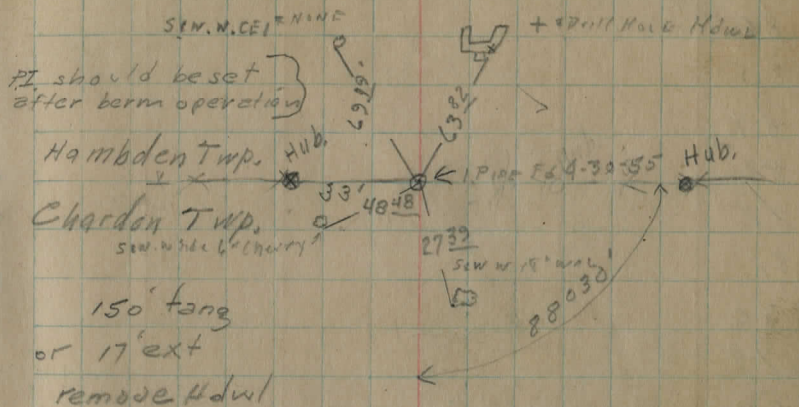 S&W. N. CEI = NONE
+ Drill Hole Hdwl
P.I. should be set
after berm operation
69 89
63 82
Hambden Twp.
Hub.
I. Pipe Fd 4-30-55
Hub.
33'
48 48
Chardon Twp.
S&W. N side 6" Cherry
27 39
S&W W 18"
88°30'
150' tang
or 17' ext
remove Hdwl